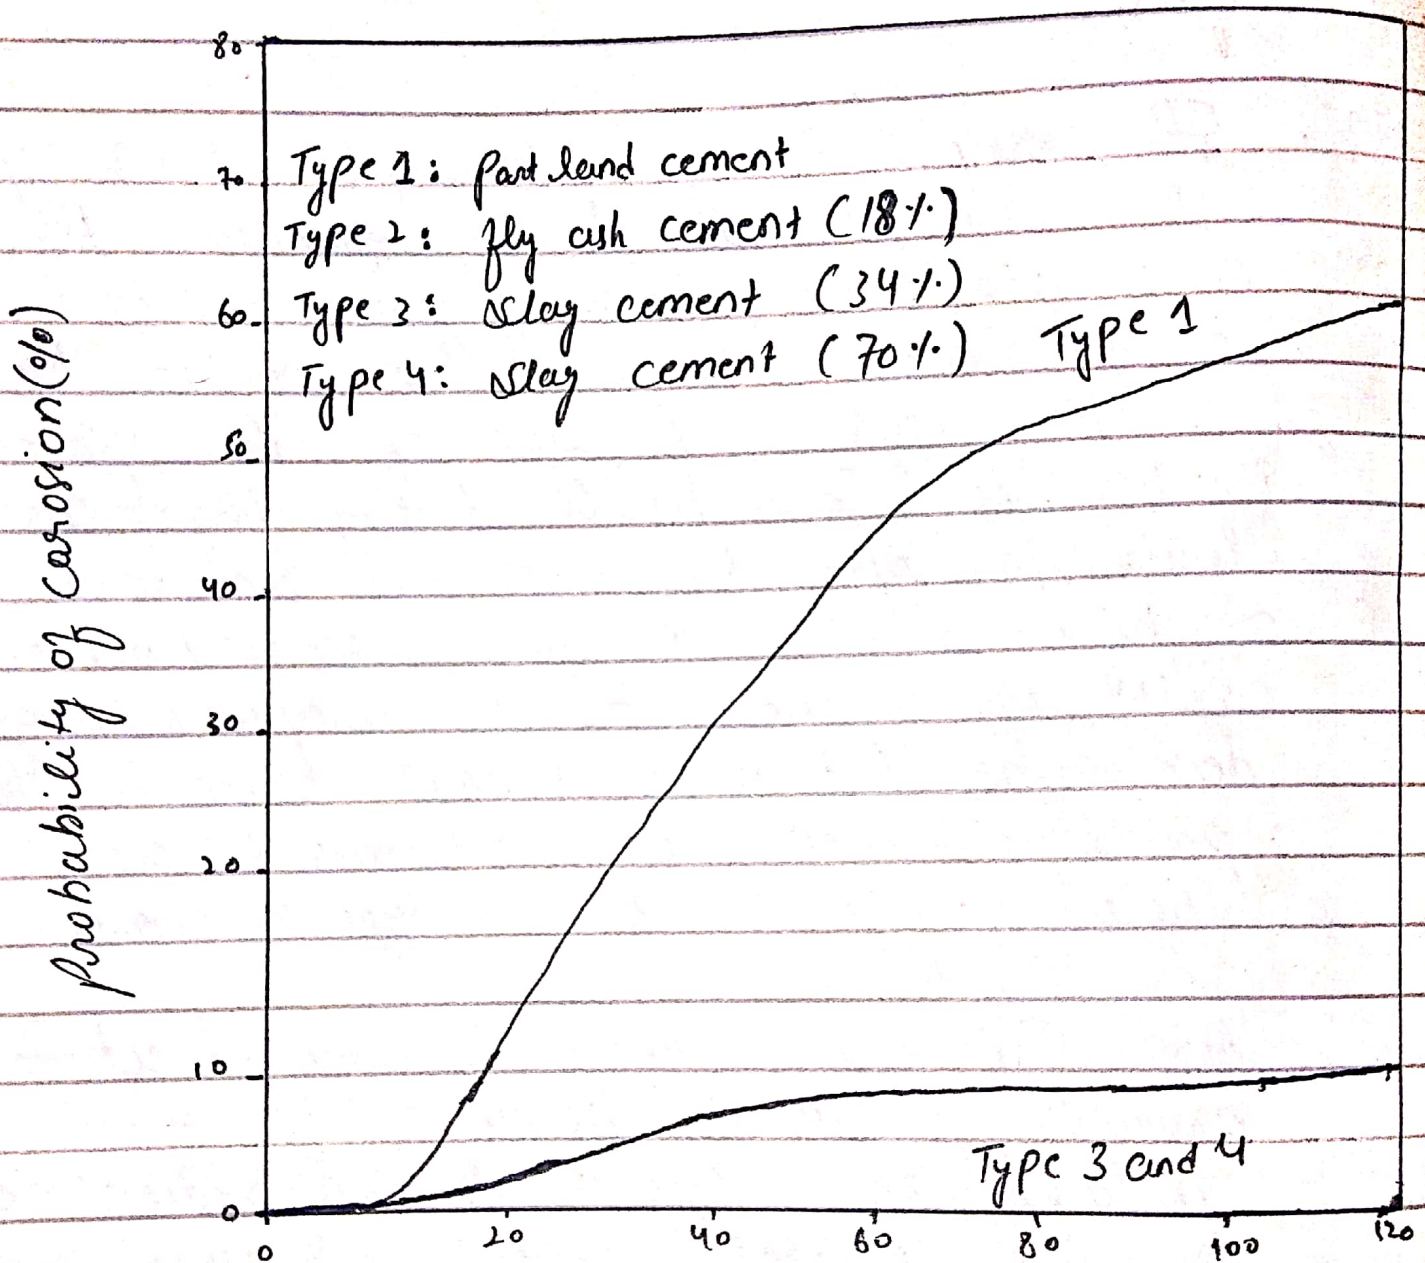 80
70
60
50
40
30
20
10
0
Probability of Carosion (%)
Type 1: Partland cement
Type 2: fly ash cement (18%)
Type 3: Slag cement (34%)
Type 4: Slag cement (70%)
Type 1
Type 3 and 4
0 20 40 60 80 100 120